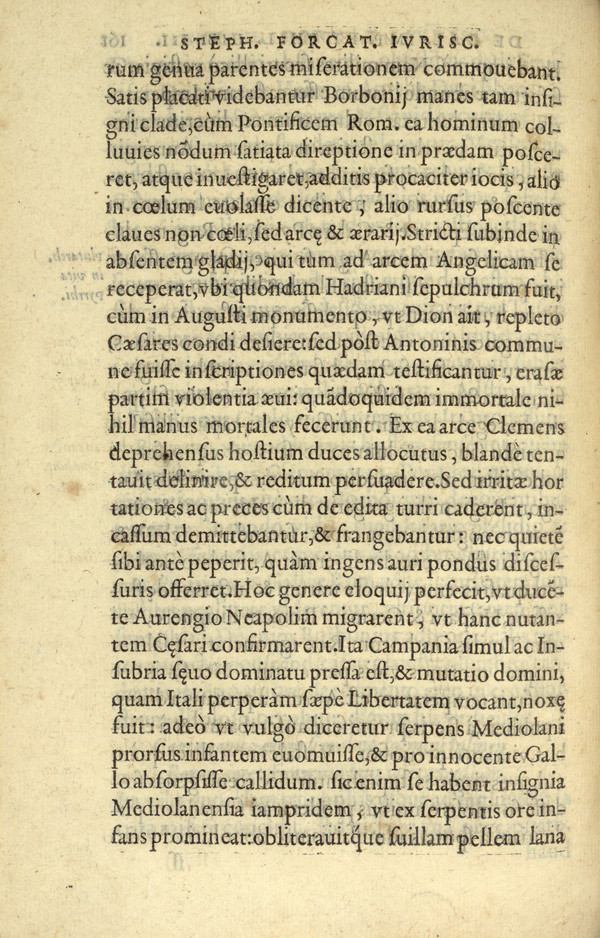 STEPH. FORCAT. IVRISC.
rum genua parentes miſerationem commouebant.
Satis placati videbantur Borbonij manes tam inſi-
gni clade, cùm Pontificem Rom. ea hominum col-
luuies nōdum ſatiata direptione in prædam poſce-
ret, atque inueſtigaret, additis procaciter iocis, alio
in cœlum euolaſſe dicente, alio rurſus poſcente
claues non cœli, ſed arcę & ærarij. Stricti ſubinde in
abſentem gladij, qui tum ad arcem Angelicam ſe
receperat, vbi quondam Hadriani ſepulchrum fuit,
cùm in Auguſti monumento, vt Dion ait, repleto
Cæſares condi deſiere: ſed pòſt Antoninis commu-
ne fuiſſe inſcriptiones quædam teſtificantur, eraſæ
partim violentia æui: quādoquidem immortale ni-
hil manus mortales fecerunt. Ex ea arce Clemens
deprehenſus hoſtium duces allocutus, blandè ten-
tauit delinire, & reditum perſuadere. Sed irritæ hor
tationes ac preces cùm de edita turri caderent, in-
caſſum demittebantur, & frangebantur: nec quietē
ſibi antè peperit, quàm ingens auri pondus diſceſ-
ſuris offerret. Hoc genere eloquij perfecit, vt ducē-
te Aurengio Neapolim migrarent, vt hanc nutan-
tem Cęſari confirmarent. Ita Campania ſimul ac In-
ſubria ſęuo dominatu preſſa eſt, & mutatio domini,
quam Itali perperàm ſæpè Libertatem vocant, noxę
fuit: adeò vt vulgò diceretur ſerpens Mediolani
prorſus infantem euomuiſſe, & pro innocente Gal-
lo abſorpſiſſe callidum. ſic enim ſe habent inſignia
Mediolanenſia iampridem, vt ex ſerpentis ore in-
fans promineat: obliterauitq́ue ſuillam pellem lana